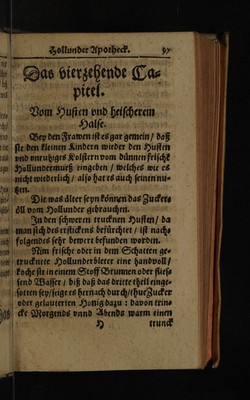 Hollunder Apotheck. 97
Das vierzehende Ca-
pitel.
Vom Husten vnd heischerem
Halse.
Bey den Frawen ist es gar gemein / daß
sie den kleinen Kindern wieder den Husten
vnd vnruhiges Kolstern vom dünnen frische
Hollundermuß eingeben / welches wie es
nicht wiederlich / also hat es auch seinen nu-
tzen.
Die was älter seyn können das Zucker-
öll vom Hollunder gebrauchen.
Zu den schweren trucknen Husten / da
man sich des erstickens befürchtet / ist nach-
folgendes sehr bewert befunden worden.
Nim frische oder in dem Schatten ge-
trucknete Hollunderbleter eine handvoll /
koche sie in einem Stoff Brunnen oder flies-
send Wasser / biß daß das dritte theil einge-
sotten sey / seige es hernach durch / thue Zucker
oder geleuterten Honig dazu : davon trin-
cke Morgends vnnd Abends warm einen
trunck